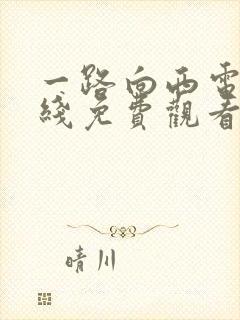 一路向西電
綫免費觀看
晴川